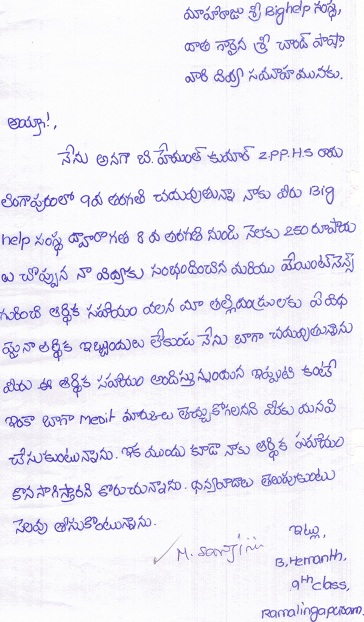 మహారాజు శ్రీ Bighelp సంస్థ,
దాత గారైన శ్రీ చాంద్ పాషా
వారి దివ్య సముఖమునకు.
అయ్యా!,
నేను అనగా బి. హేమంత్ కుమార్ Z.P.P.H.S రామ
లింగాపురంలో 9వ తరగతి చదువుతున్నా నాకు మీరు Big
help సంస్థ ద్వారా గత 8 వ తరగతి నుండి నెలకు 250 రూపాయ
ల చొప్పున నా విద్యకు సంభందించిన మరియు మేయింటెనెన్స్
గురించి ఆర్థిక సహాయం వలన మా తల్లిదండ్రులకు ఏ విధ
మైనా ఆర్థిక ఇబ్బందులు లేకుండ నేను బాగా చదువుతున్నాను
మీరు ఈ ఆర్థిక సహాయం అందిస్తున్నందున ఇప్పటి కంటే
ఇంకా బాగా Merit మార్కులు తెచ్చుకోగలనని మీకు మనవి
చేసుకుంటున్నాను. ఇక ముందు కూడా నాకు ఆర్థిక సహాయం
కొనసాగిస్తారని కోరుచున్నాను. ధన్యవాదాలు తెలుపుకుంటు
సెలవు తీసుకొంటున్నాను.
ఇట్లు,
B.Hemanth,
9th class,
Ramalingapuram.